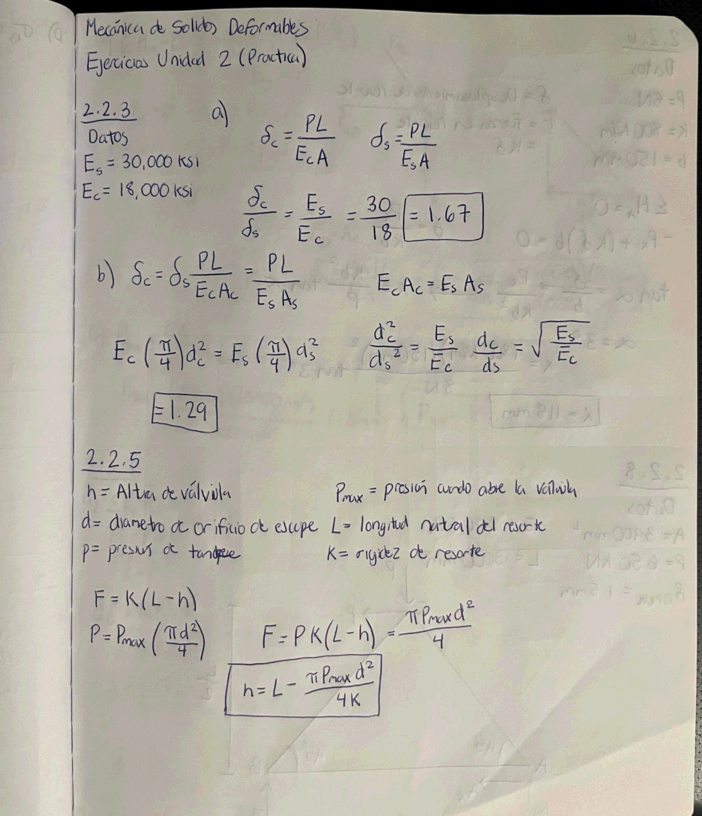 Mecánica de Solidos Deformables
Ejercicios Unidad 2 (Practica)
2.2.3
Datos
E_s = 30,000 ksi
E_c = 18,000 ksi
a)
δ_c = PL / E_c A    δ_s = PL / E_s A
δ_c / δ_s = E_s / E_c = 30 / 18 = 1.67
b) δ_c = δ_s  PL / E_c A_c = PL / E_s A_s    E_c A_c = E_s A_s
E_c (π/4) d_c² = E_s (π/4) d_s²    d_c² / d_s² = E_s / E_c    d_c / d_s = √(E_s / E_c)
= 1.29
2.2.5
h = Altura de válvula    P_max = presión cuando abre la válvula
d = diametro de orificio de escape    L = longitud natural del resorte
p = presión de tanque    K = rigidez de resorte
F = K(L-h)
P = P_max (πd²/4)    F = P  K(L-h) = πP_max d² / 4
h = L - πP_max d² / 4K